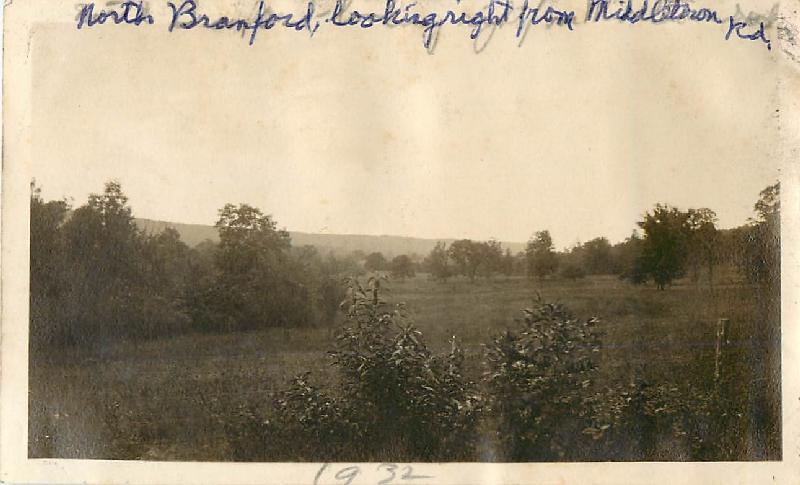 North Branford, looking right from Middletown Rd.
1932